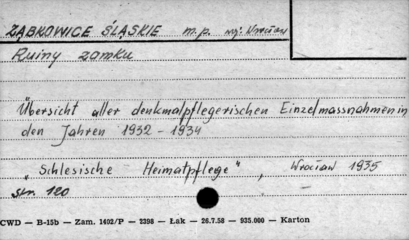 ZĄBKOWICE ŚLĄSKIE m.p. woj. Wrocław
Ruiny zamku
Übersicht aller denkmalpflegerischen Einzelmassnahmen in
den Jahren 1932 - 1934
„Schlesische Heimatpflege", Wrocław 1935
str. 120 –
CWD — B-15b — Zam. 1492/P — 2298 — Łak — 26.7.58 — 935.000 — Karton